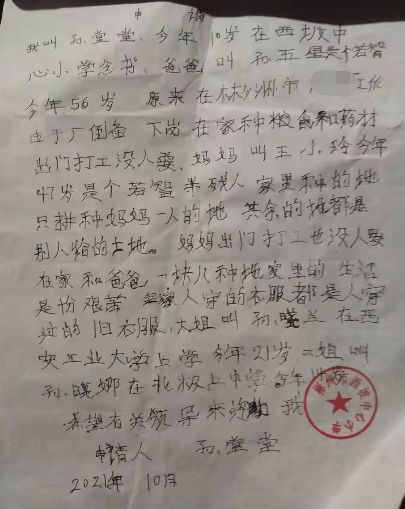 申请
我叫孙堂堂,今年10岁在西坡中
心小学念书、爸爸叫孙五星是个若智
今年56岁 原来在林州市, 工作
由于厂倒备 下岗在家种粮食和药材
出门打工没人要。妈妈叫王小玲今年
47岁是个若智半残人 家里种的地
只耕种妈妈一人的地 其余的地都是
别人的土地。 妈妈出门打工也没人要
在家和爸爸一块儿种地家里的生活
是份艰苦 人穿的衣服都是人穿
过的旧衣服,大姐叫孙晓兰在西
安工业大学上学今年21岁二姐叫
孙晓娜在北极上中学今年
希望有关领导来资助我
申请人 孙堂堂
2021年 10月
西坡中心小学